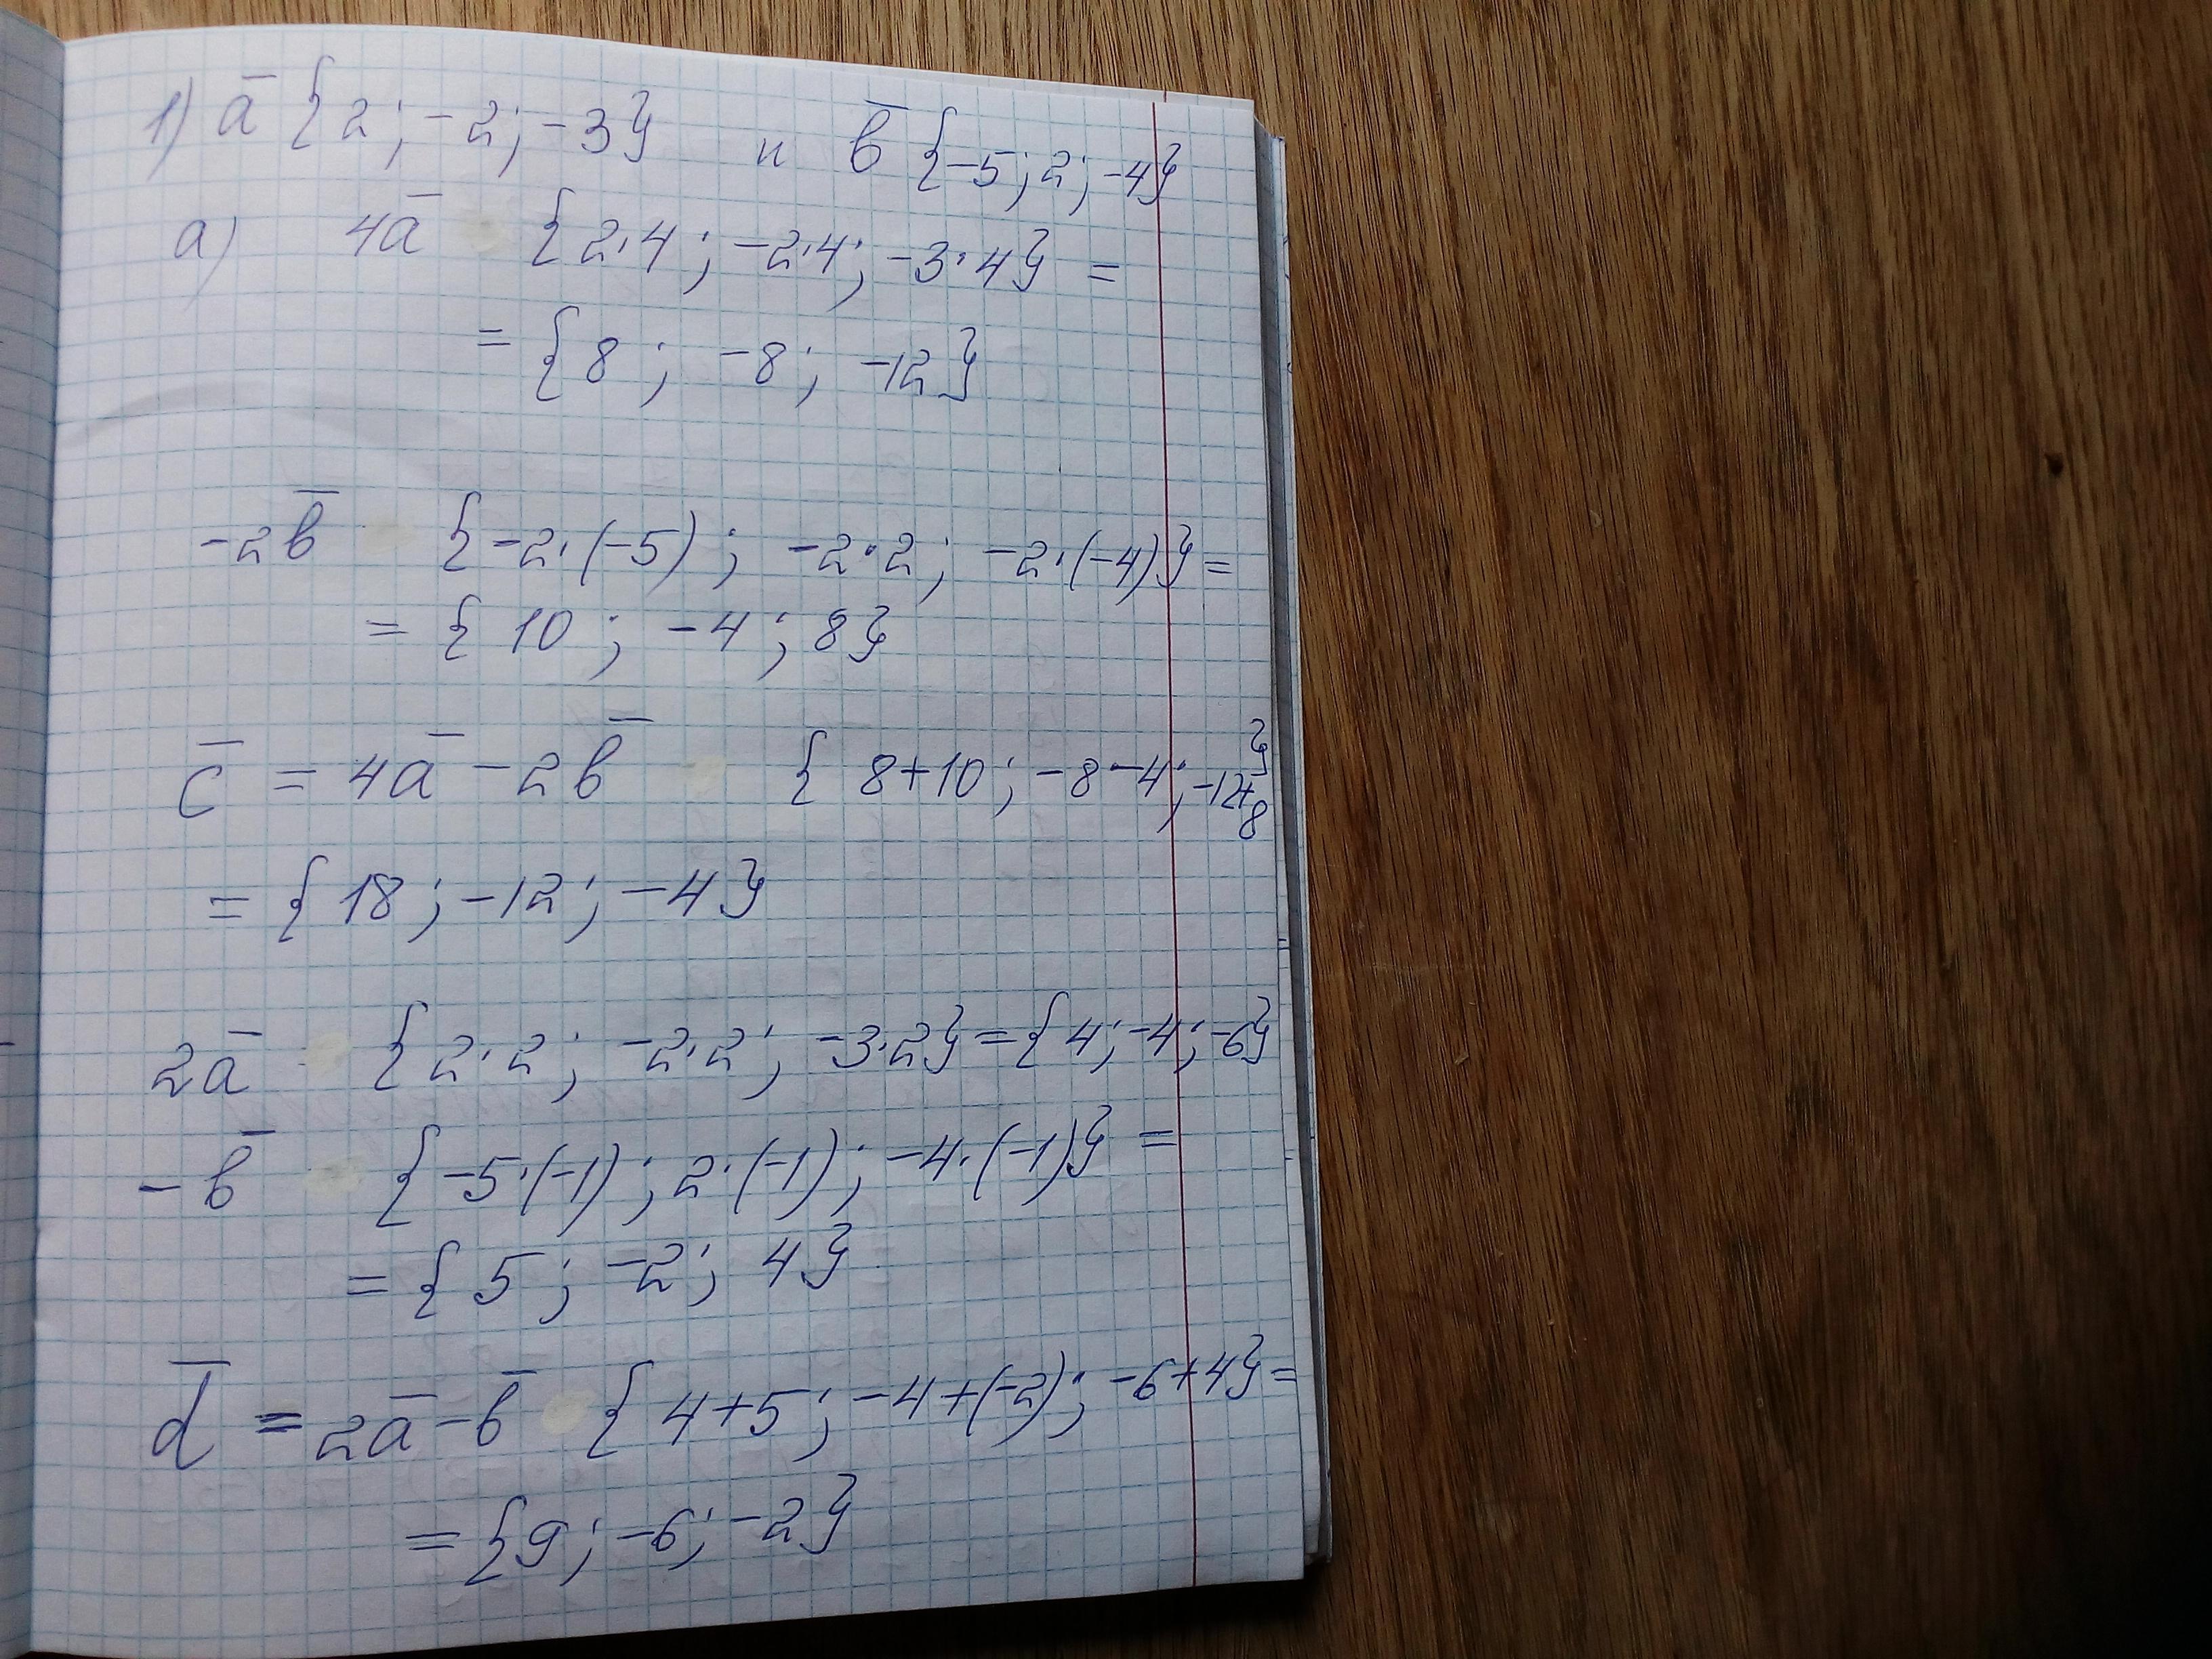 1) a̅ {2; -2; -3} и b̅ {-5; 2; -4}
а) 4a̅ {2·4; -2·4; -3·4} =
= {8; -8; -12}
-2b̅ {-2·(-5); -2·2; -2·(-4)} =
= {10; -4; 8}
c̅ = 4a̅ - 2b̅ {8+10; -8-4; -12+8}
= {18; -12; -4}
2a̅ {2·2; -2·2; -3·2} = {4; -4; -6}
-b̅ {-5·(-1); 2·(-1); -4·(-1)} =
= {5; -2; 4}
d̅ = 2a̅ - b̅ {4+5; -4+(-2); -6+4} =
= {9; -6; -2}